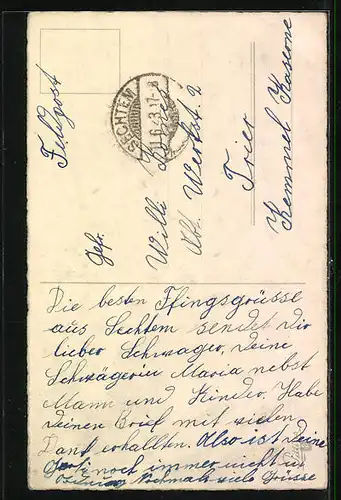 Feldpost
SECHTEM
11.6.3.17-8
Gefr.
Willi
Abt. Werkst. 2
Trier
Kemmel Kaserne
Die besten Pfingsgrüsse
aus Sechtem sendet dir
lieber Schwager, deine
Schwägerin Maria nebst
Mann und Kinder. Habe
deinen Brief mit vielen
Dank erhallten. Also ist deine
noch immer nicht in
Nochmals viele Grüsse